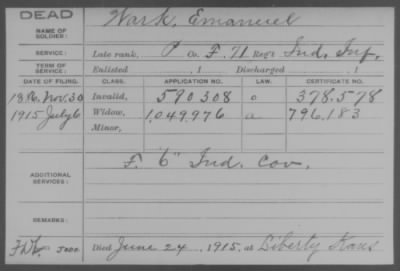 DEAD
Wark, Emanuel
NAME OF SOLDIER:
SERVICE: Late rank, P Co. F, 71 Reg't Ind. Inf.
TERM OF SERVICE: Enlisted , 1 Discharged , 1
DATE OF FILING. CLASS. APPLICATION NO. LAW. CERTIFICATE NO.
Nov. 30 Invalid, 590308 378.578
1915 July 6 Widow, 1,049,976 a 796.183
Minor,
ADDITIONAL SERVICES: F. "6" Ind. Cav.
REMARKS:
Died June 24, 1915, at Liberty Kans